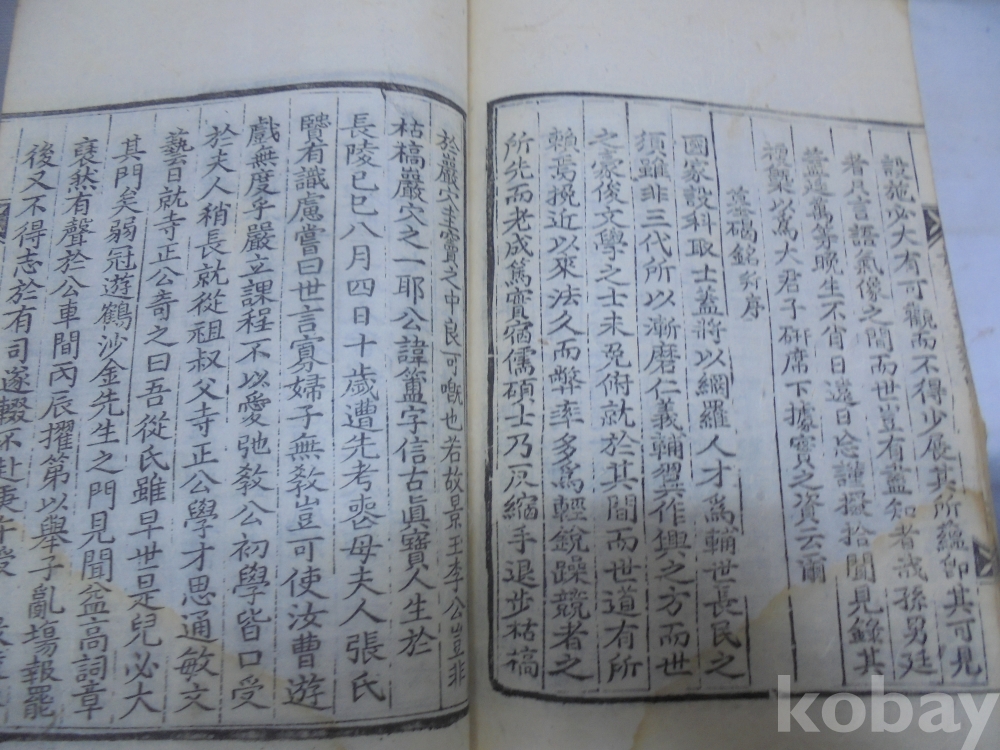 設施必大有可觀而不得少展其所蘊即其可見
者凡言語氣像之間而世豈有盡知者哉孫男廷
蓋逮萬等晚生不省日遠日忘謹掇拾聞見錄其
梗槩以為大君子硏席下據實之資云爾
墓碣銘幷序
國家設科取士蓋將以網羅人才為輔世長民之
須雖非三代所以漸磨仁義輔翌興作之方而世
之豪俊文學之士未免俯就於其間而世道有所
賴焉挽近以來法久而弊率多為輕銳躁競者之
所先而老成篤實宿儒碩士乃反縮手退步枯槁
於巖穴圭竇之中良可嘅也若故景王李公豈非
枯槁巖穴之一耶公諱簠字信古眞寶人生於
長陵己巳八月四日十歲遭先考喪母夫人張氏
賢有識慮嘗曰世言寡婦子無敎豈可使汝曹遊
戲無度乎嚴立課程不以愛弛敎公初學皆口受
於夫人稍長就從祖叔父寺正公學才思通敏文
藝日就寺正公奇之曰吾從氏雖早世是兒必大
其門矣弱冠遊鶴沙金先生之門見聞益高詞章
裒然有聲於公車間丙辰擢第以舉子亂場報罷
後又不得志於有司遂輟不赴庚午
kobay